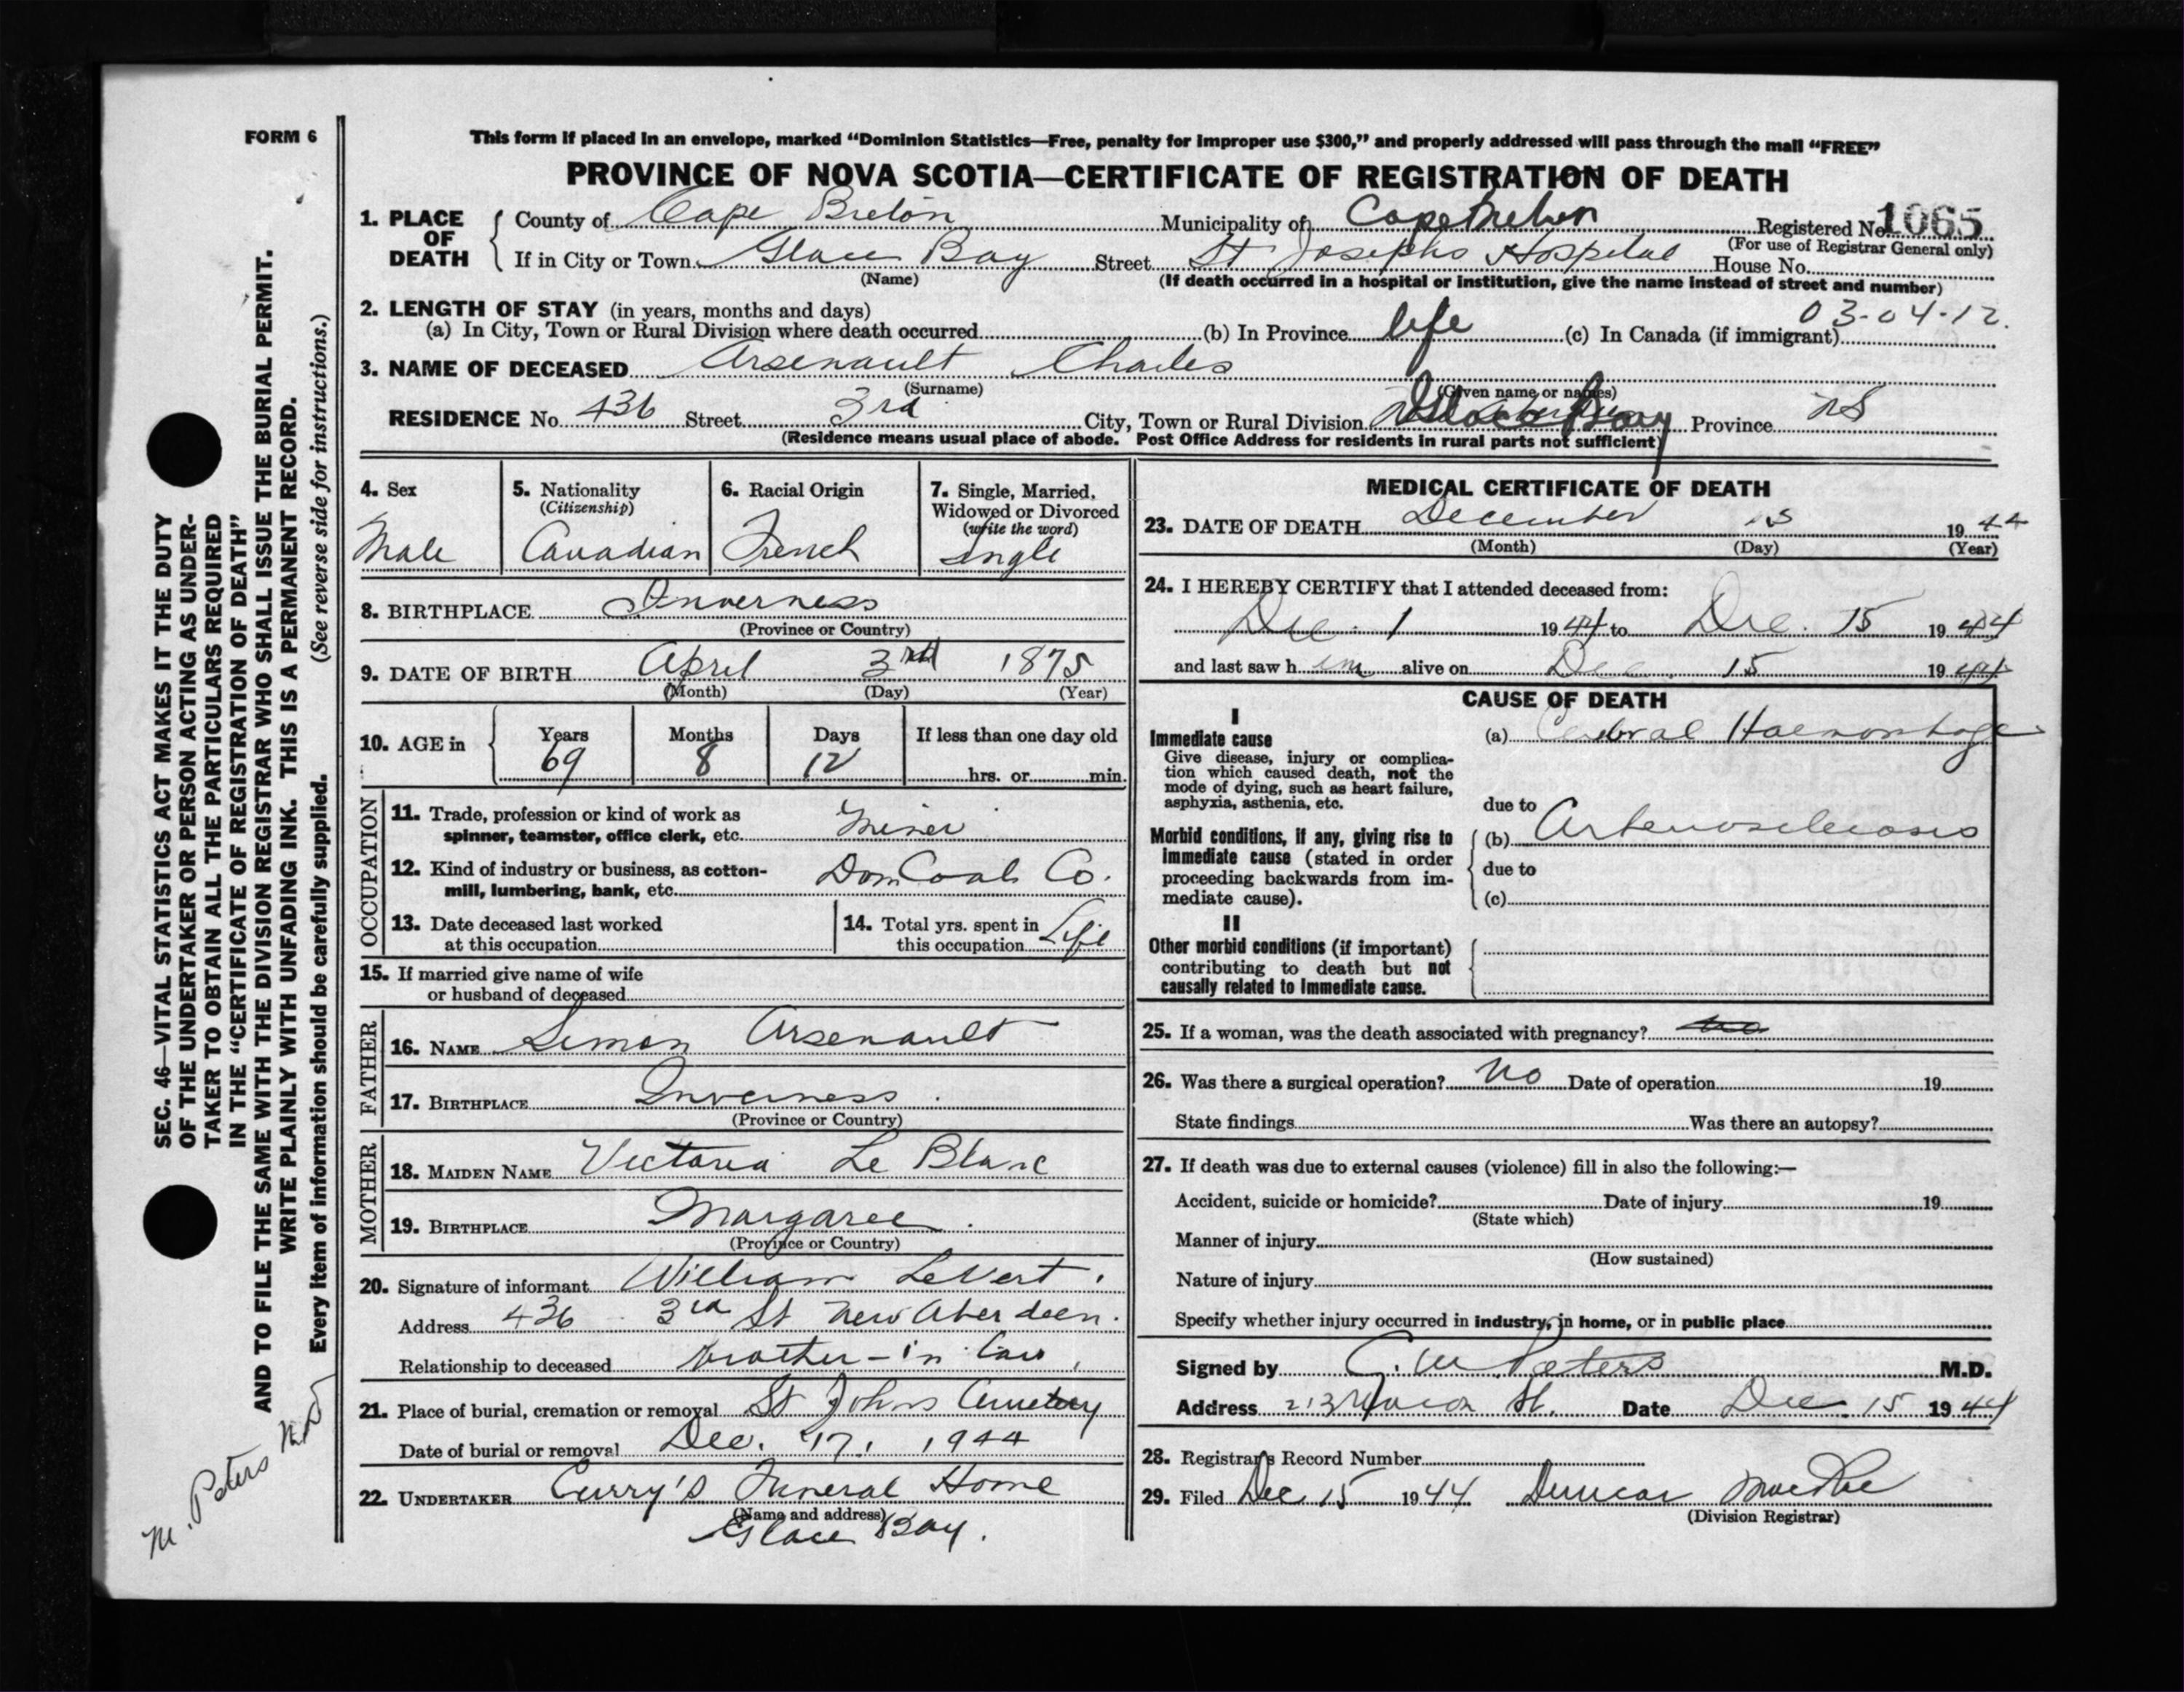 FORM 6
This form if placed in an envelope, marked “Dominion Statistics—Free, penalty for improper use $300,” and properly addressed will pass through the mail “FREE”
PROVINCE OF NOVA SCOTIA—CERTIFICATE OF REGISTRATION OF DEATH
1. PLACE OF DEATH County of Cape Breton Municipality of Cape Breton Registered No. 1065
(For use of Registrar General only)
If in City or Town Glace Bay Street St Josephs Hospital House No.
(Name) (If death occurred in a hospital or institution, give the name instead of street and number)
2. LENGTH OF STAY (in years, months and days) 03-04-12.
(a) In City, Town or Rural Division where death occurred (b) In Province life (c) In Canada (if immigrant)
3. NAME OF DECEASED Arsenault Charles
(Surname) (Given name or names)
RESIDENCE No. 436 Street 3rd City, Town or Rural Division Glace Bay Province NS
(Residence means usual place of abode. Post Office Address for residents in rural parts not sufficient)
4. Sex
Male
5. Nationality
(Citizenship)
Canadian
6. Racial Origin
French
7. Single, Married,
Widowed or Divorced
(write the word)
Single
8. BIRTHPLACE Inverness
(Province or Country)
9. DATE OF BIRTH April 3rd 1875
(Month) (Day) (Year)
10. AGE in Years Months Days If less than one day old
69 8 12 hrs. or min.
OCCUPATION
11. Trade, profession or kind of work as
spinner, teamster, office clerk, etc. Miner
12. Kind of industry or business, as cotton-
mill, lumbering, bank, etc. Dom Coal Co.
13. Date deceased last worked
at this occupation
14. Total yrs. spent in
this occupation Life
15. If married give name of wife
or husband of deceased
FATHER
16. NAME Simon Arsenault
17. BIRTHPLACE Inverness.
(Province or Country)
MOTHER
18. MAIDEN NAME Victoria Le Blanc
19. BIRTHPLACE Margaree.
(Province or Country)
20. Signature of informant William LeVert.
Address 436 - 3rd St New Aberdeen.
Relationship to deceased Brother-in Law,
21. Place of burial, cremation or removal St Johns Cemetery
Date of burial or removal Dec. 17, 1944
22. UNDERTAKER Curry's Funeral Home
(Name and address)
Glace Bay.
MEDICAL CERTIFICATE OF DEATH
23. DATE OF DEATH December 15 1944
(Month) (Day) (Year)
24. I HEREBY CERTIFY that I attended deceased from:
Dec. 1 1944 to Dec. 15 1944
and last saw him alive on Dec. 15 1944
CAUSE OF DEATH
I
Immediate cause
Give disease, injury or complica-
tion which caused death, not the
mode of dying, such as heart failure,
asphyxia, asthenia, etc.
(a) Cerebral Haemorrhage
due to
Morbid conditions, if any, giving rise to
immediate cause (stated in order
proceeding backwards from im-
mediate cause).
(b) Arteriosclerosis
due to
(c)
II
Other morbid conditions (if important)
contributing to death but not
causally related to immediate cause.
25. If a woman, was the death associated with pregnancy? no
26. Was there a surgical operation? No Date of operation 19
State findings Was there an autopsy?
27. If death was due to external causes (violence) fill in also the following:—
Accident, suicide or homicide? Date of injury 19
(State which)
Manner of injury
(How sustained)
Nature of injury
Specify whether injury occurred in industry, in home, or in public place
Signed by Peters M.D.
Address St. Date Dec. 15 1944
28. Registrar's Record Number
29. Filed Dec 15 1944 Duncan
(Division Registrar)
SEC. 46—VITAL STATISTICS ACT MAKES IT THE DUTY
OF THE UNDERTAKER OR PERSON ACTING AS UNDER-
TAKER TO OBTAIN ALL THE PARTICULARS REQUIRED
IN THE “CERTIFICATE OF REGISTRATION OF DEATH”
AND TO FILE THE SAME WITH THE DIVISION REGISTRAR WHO SHALL ISSUE THE BURIAL PERMIT.
WRITE PLAINLY WITH UNFADING INK. THIS IS A PERMANENT RECORD.
Every item of information should be carefully supplied. (See reverse side for instructions.)
M. Peters